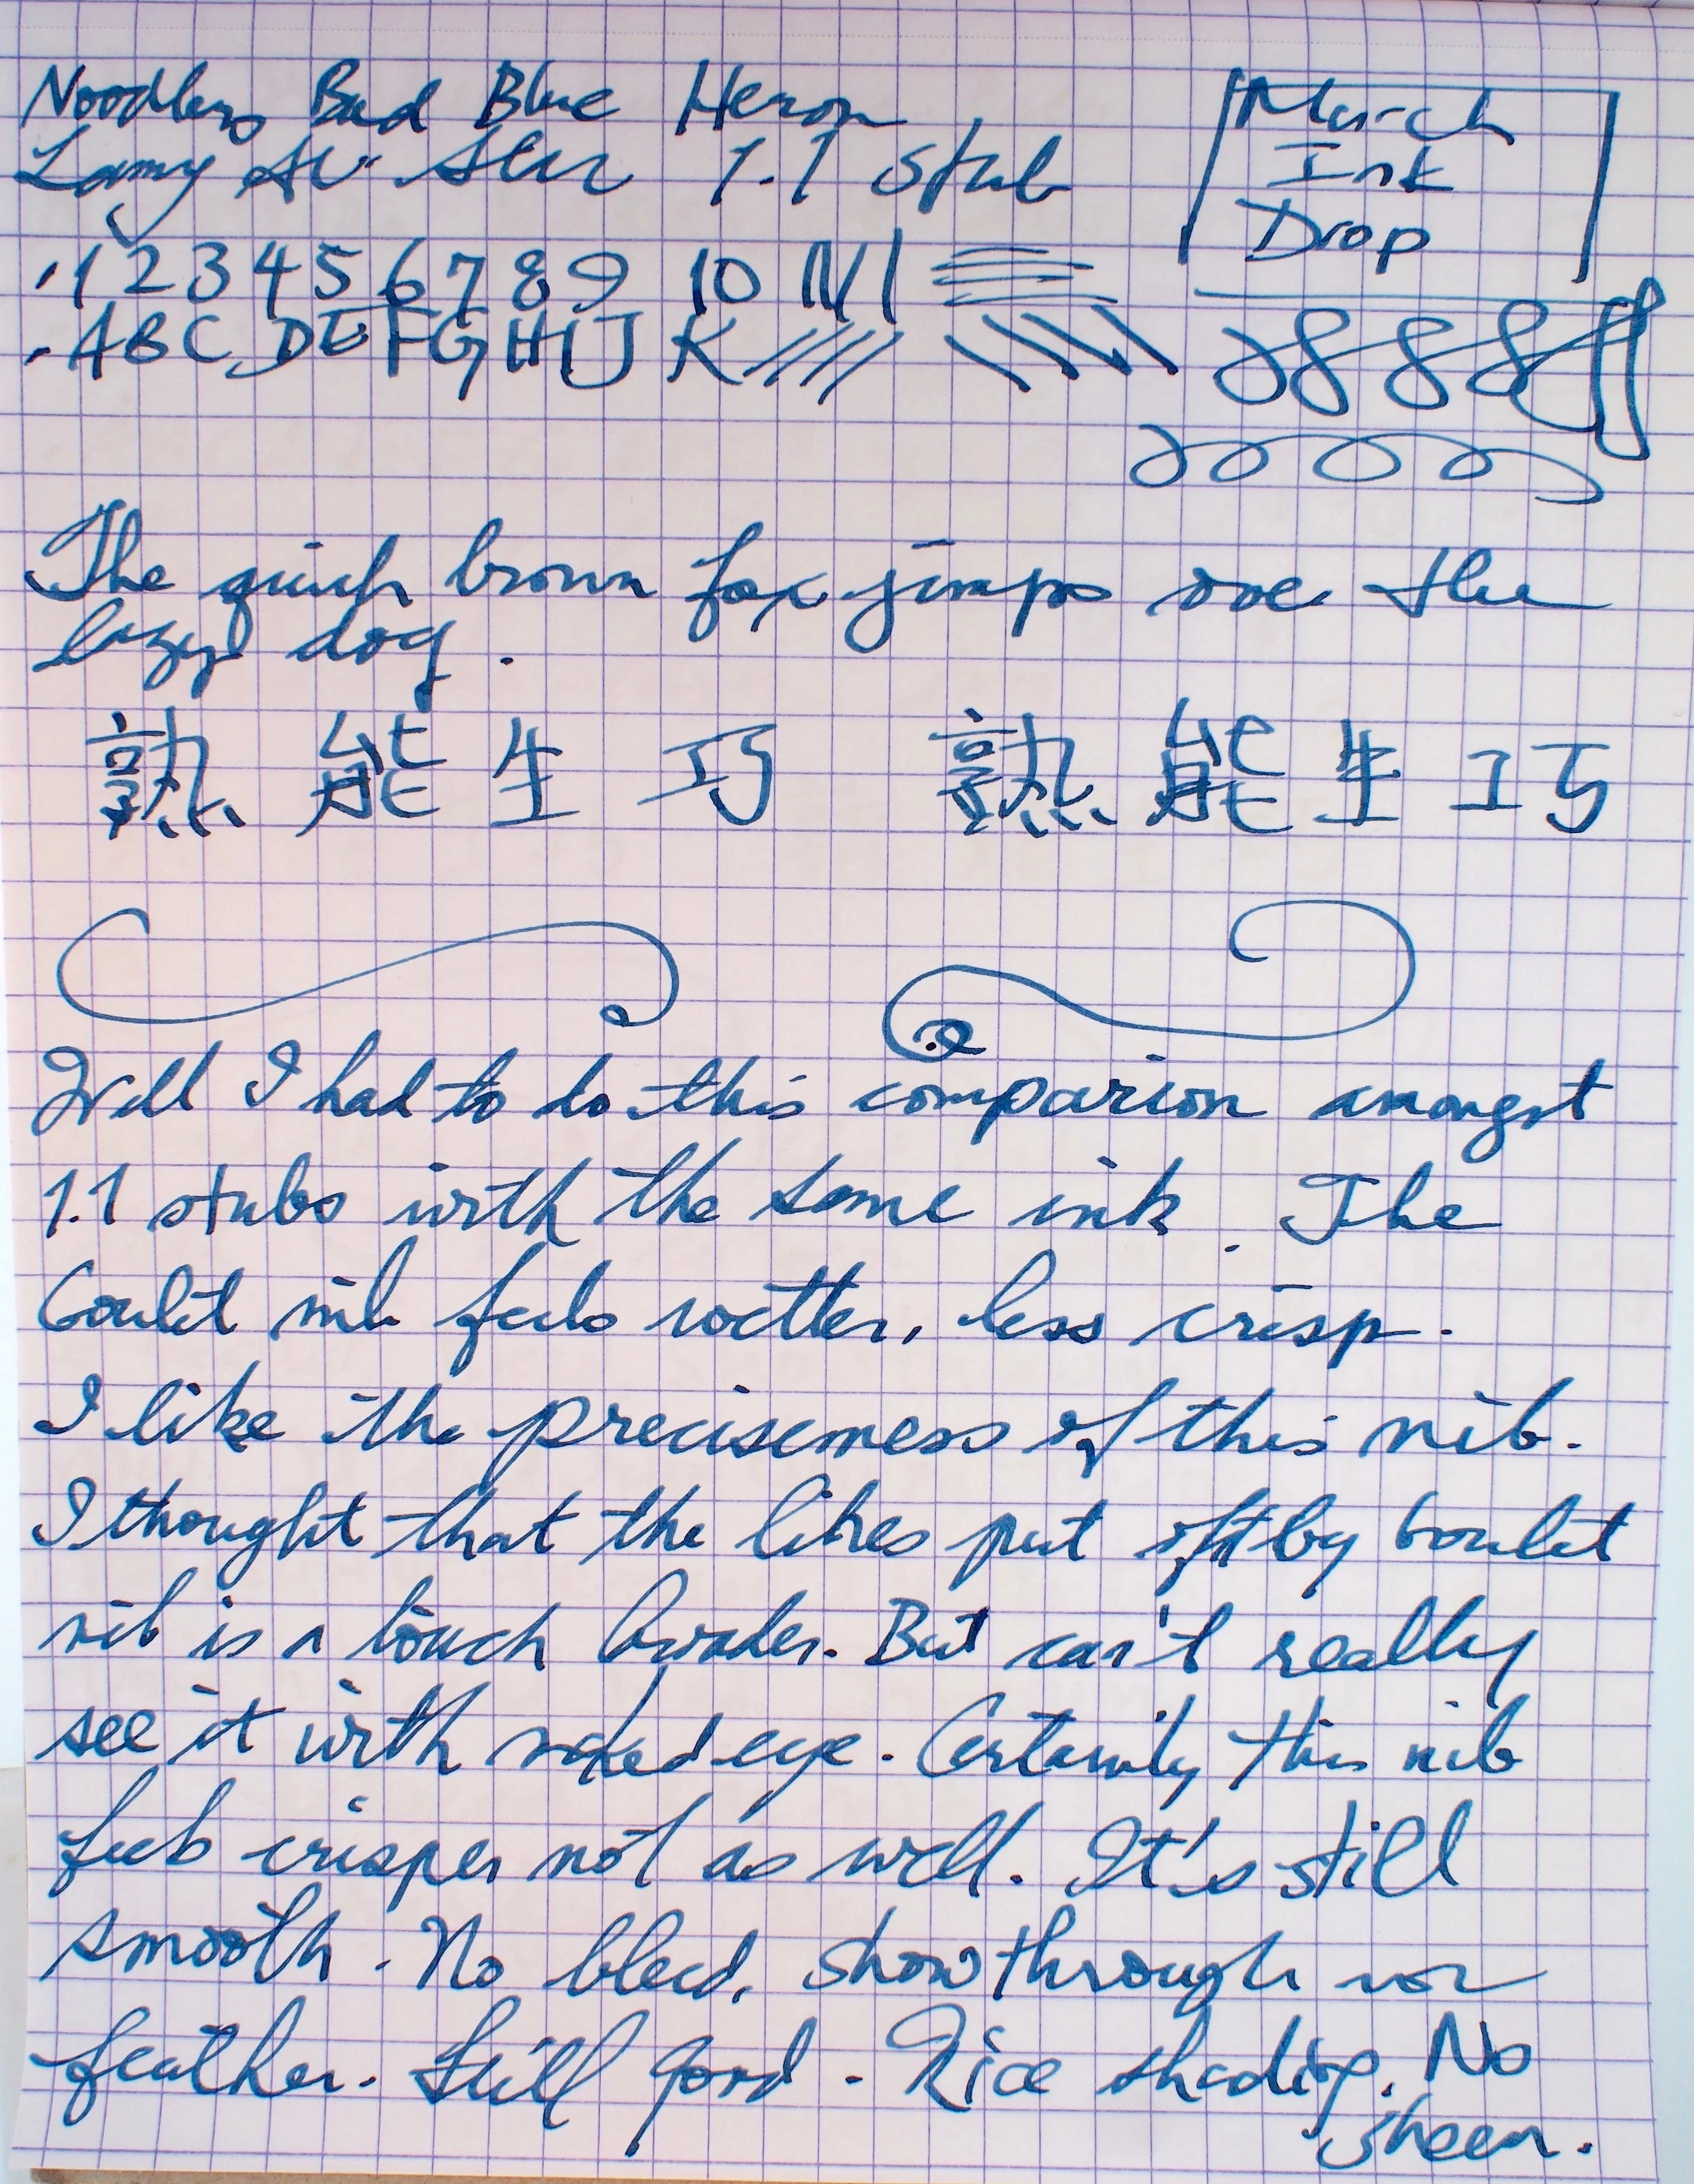 Noodlers Bad Blue Heron
Lamy Al Star 1.1 stub
March
Ink
Drop
1 2 3 4 5 6 7 8 9 10
A B C D E F G H I J K
The quick brown fox jumps over the
lazy dog.
熟能生巧 熟能生巧
Well I had to do this comparion amongst
1.1 stubs with the same ink. The
Goulet nib feels wetter, less crisp.
I like the preciseness of this nib.
I thought that the lines put out by Goulet
nib is a touch broader. But can't really
see it with naked eye. Certainly this nib
feels crisper not as well. It's still
smooth. No bleed, showthrough nor
feather. Still good. Nice shading. No
sheen.